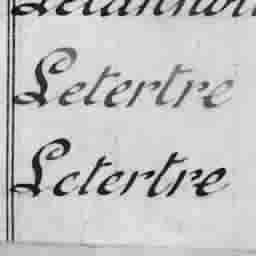 Letertre
Letertre